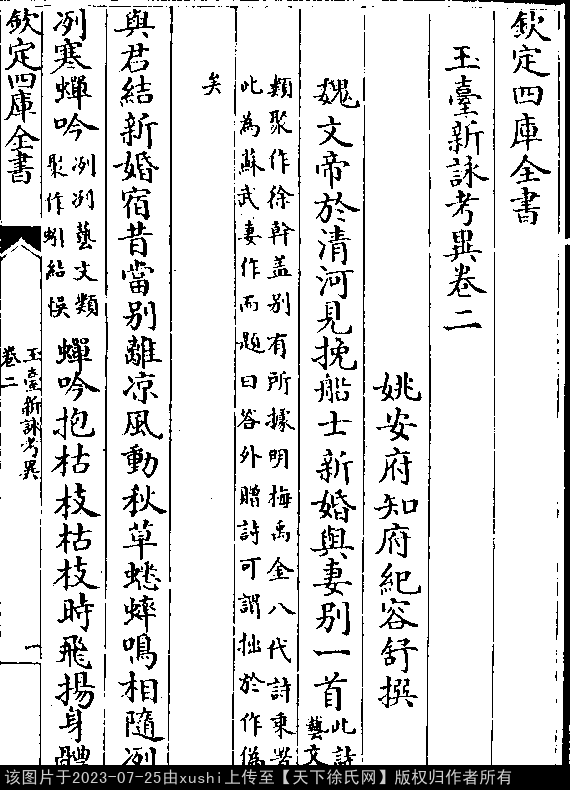 欽定四庫全書
玉臺新詠考異卷二
姚安府知府紀容舒撰
魏文帝於清河見挽船士新婚與妻别一首此詩
藝文
類聚作徐幹盖别有所據明梅禹金八代詩乗署
此為蘇武妻作而題曰答外贈詩可謂拙於作偽
矣
與君結新婚宿昔當别離凉風動秋草蟋蟀鳴相隨冽
冽寒蟬吟冽冽藝文類
聚作蚓結悮
蟬吟抱枯枝枯枝時飛揚身體
欽定四庫全書
玉臺新詠考異
卷二
一
该图片于2023-07-25由xushi上传至【天下徐氏网】版权归作者所有